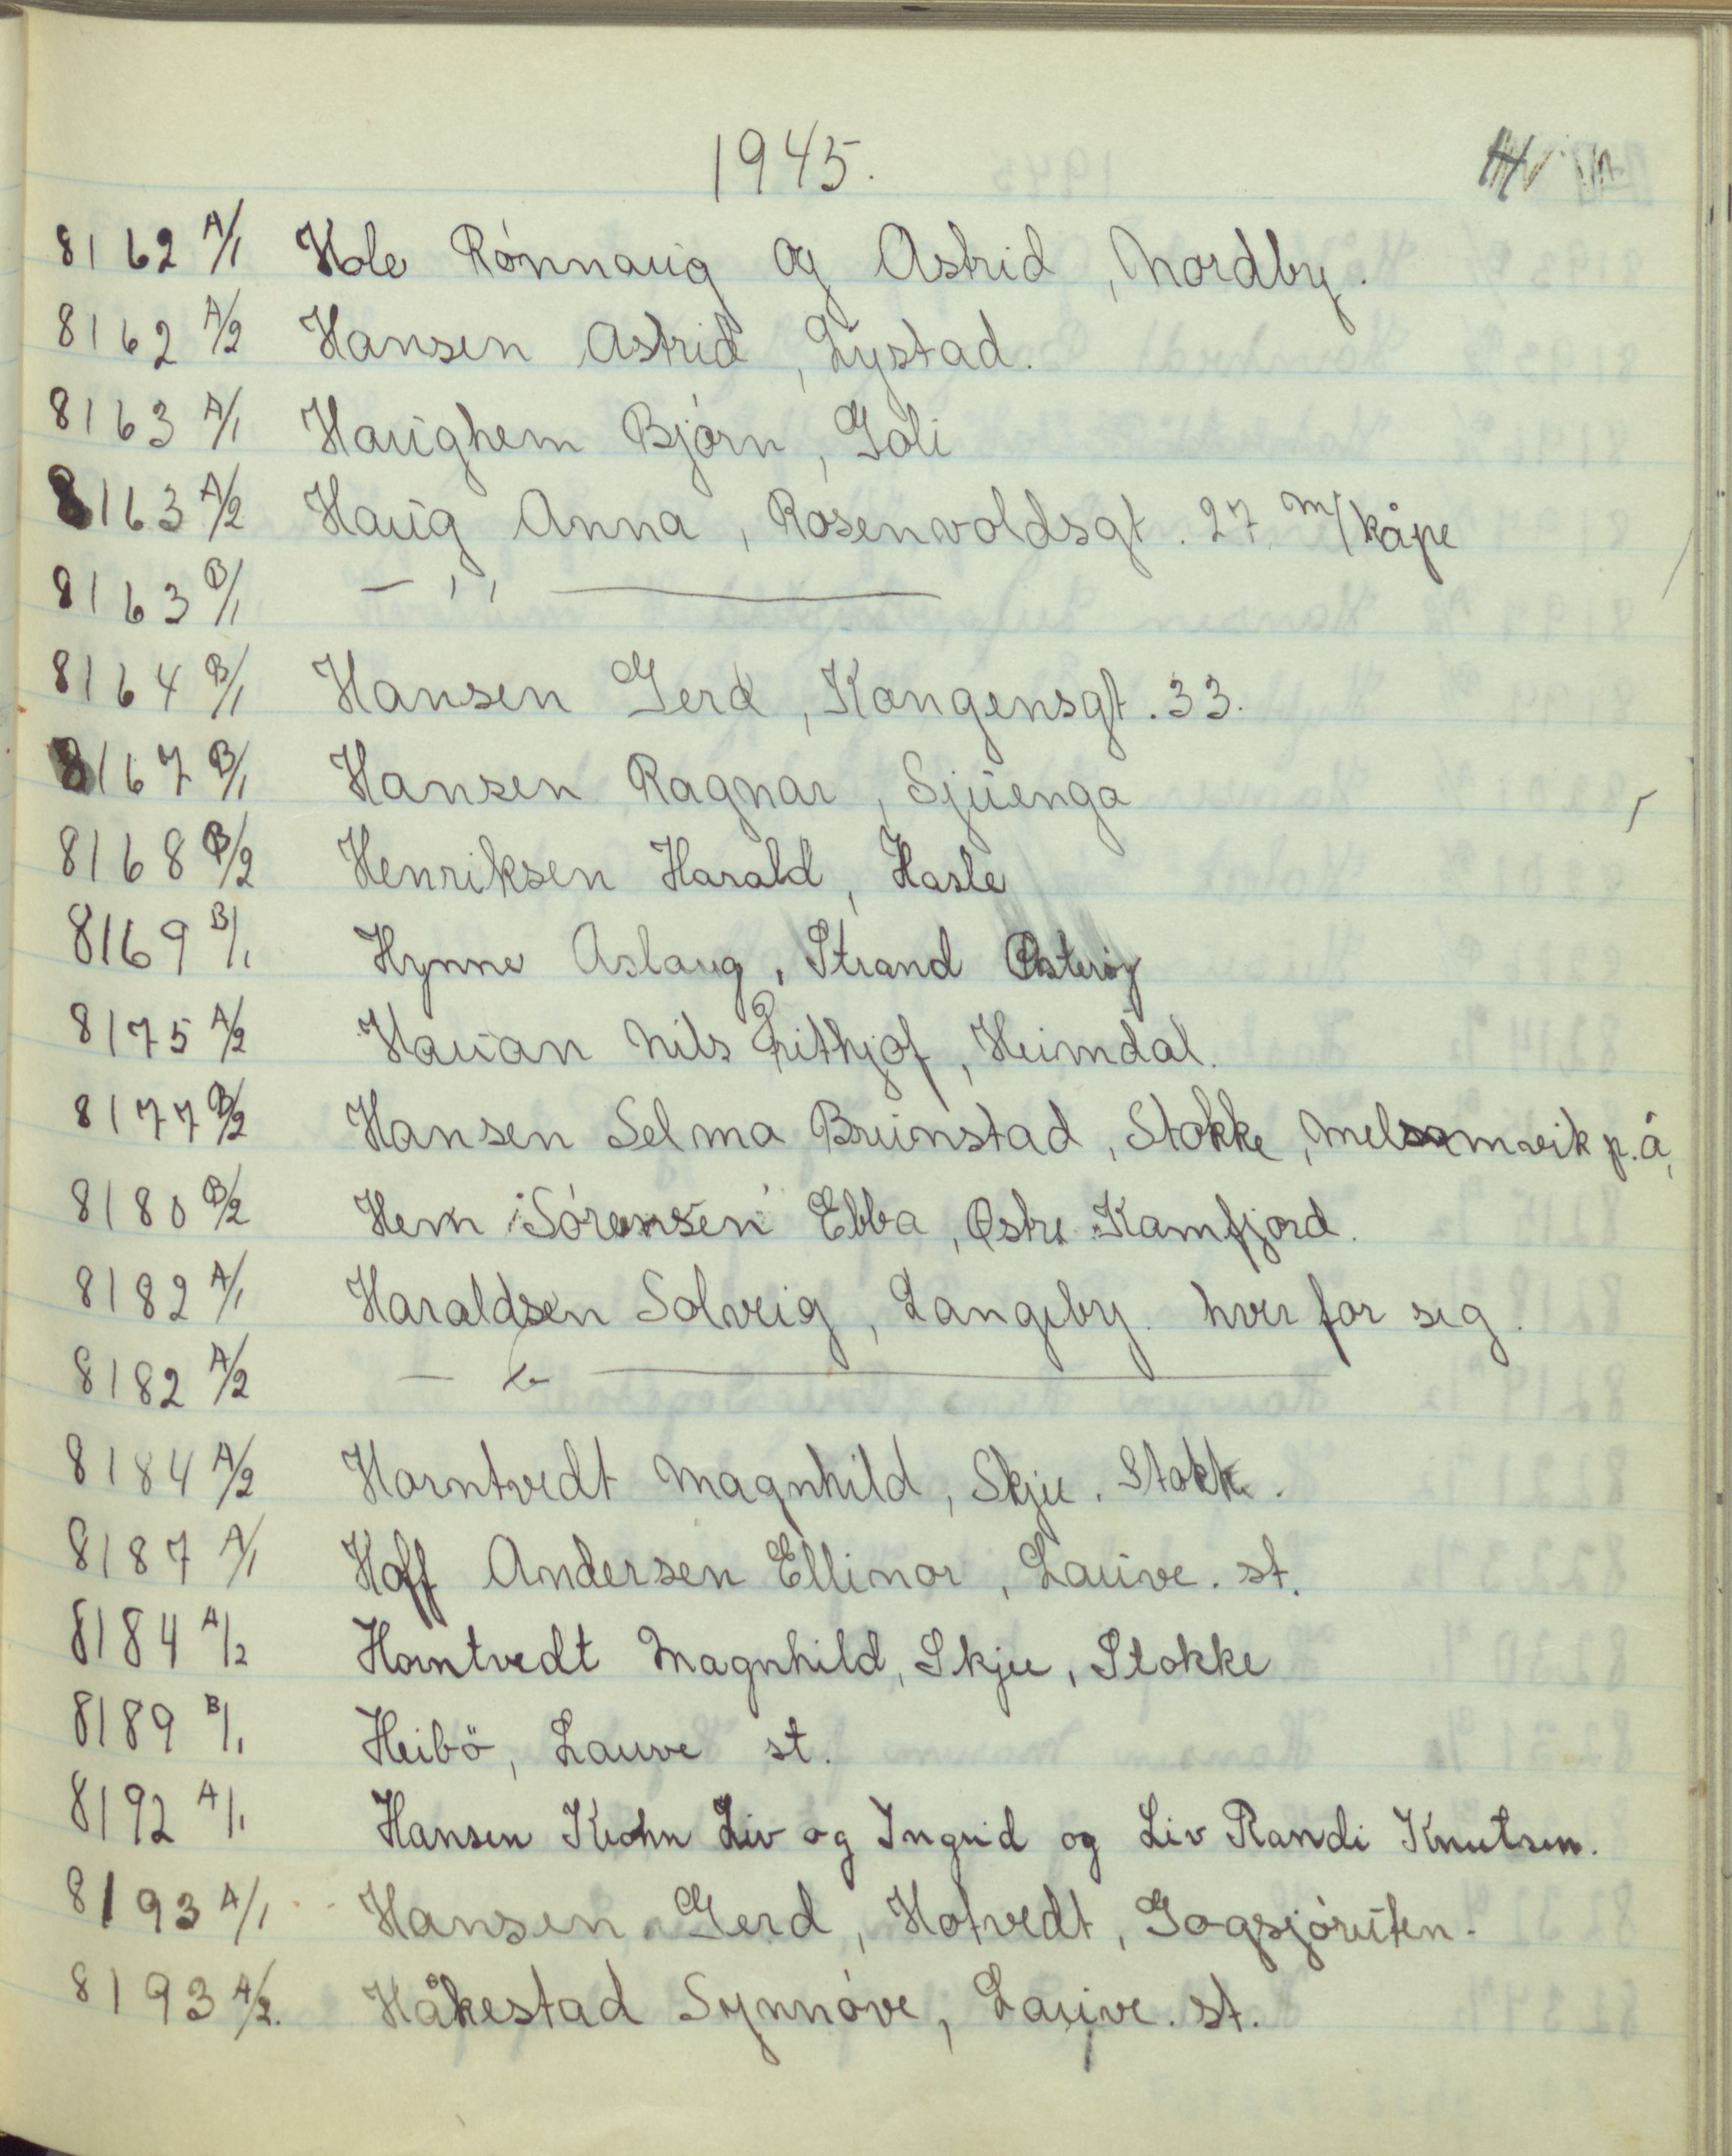 1945.
8162 A/1 Hole Rónnaug og Astrid, Nordby.
8162 A/2 Hansen Astrid, Lystad.
8163 A/1 Haughem Bjórn, Goli
8163 A/2 Haug Anna, Rosenvoldsgt. 27 m/kåpe
8163 B/1 — " —
8164 B/1 Hansen Gerd, Kongensgt. 33.
8167 B/1 Hansen Ragnar, Sjuenga
8168 B/2 Henriksen Harald, Hasle
8169 B/1 Hynne Aslaug, Strand Østerøy
8175 A/2 Hauan Nils Frithjof, Heimdal.
8177 B/2 Hansen Selma Brunstad, Stokke, Melsomvik p.å,
8180 B/2 Hem Sórensen Ebba, Østre Kamfjord.
8182 A/1 Haraldsen Solveig, Langeby. hver for seg.
8182 A/2 — —
8184 A/2 Horntvedt Magnhild, Skjee. Stokke.
8187 A/1 Hoff Andersen Ellinor, Lauve. st.
8184 A/2 Horntvedt Magnhild, Skjee, Stokke
8189 B/1 Heibö, Lauve st.
8192 A/1 Hansen Krohn Liv og Ingrid og Liv Randi Knutsen.
8193 A/1 Hansen Gerd, Hotvedt, Gogsjóruten.
8193 A/2. Håkestad Synnóve, Lauve. st.